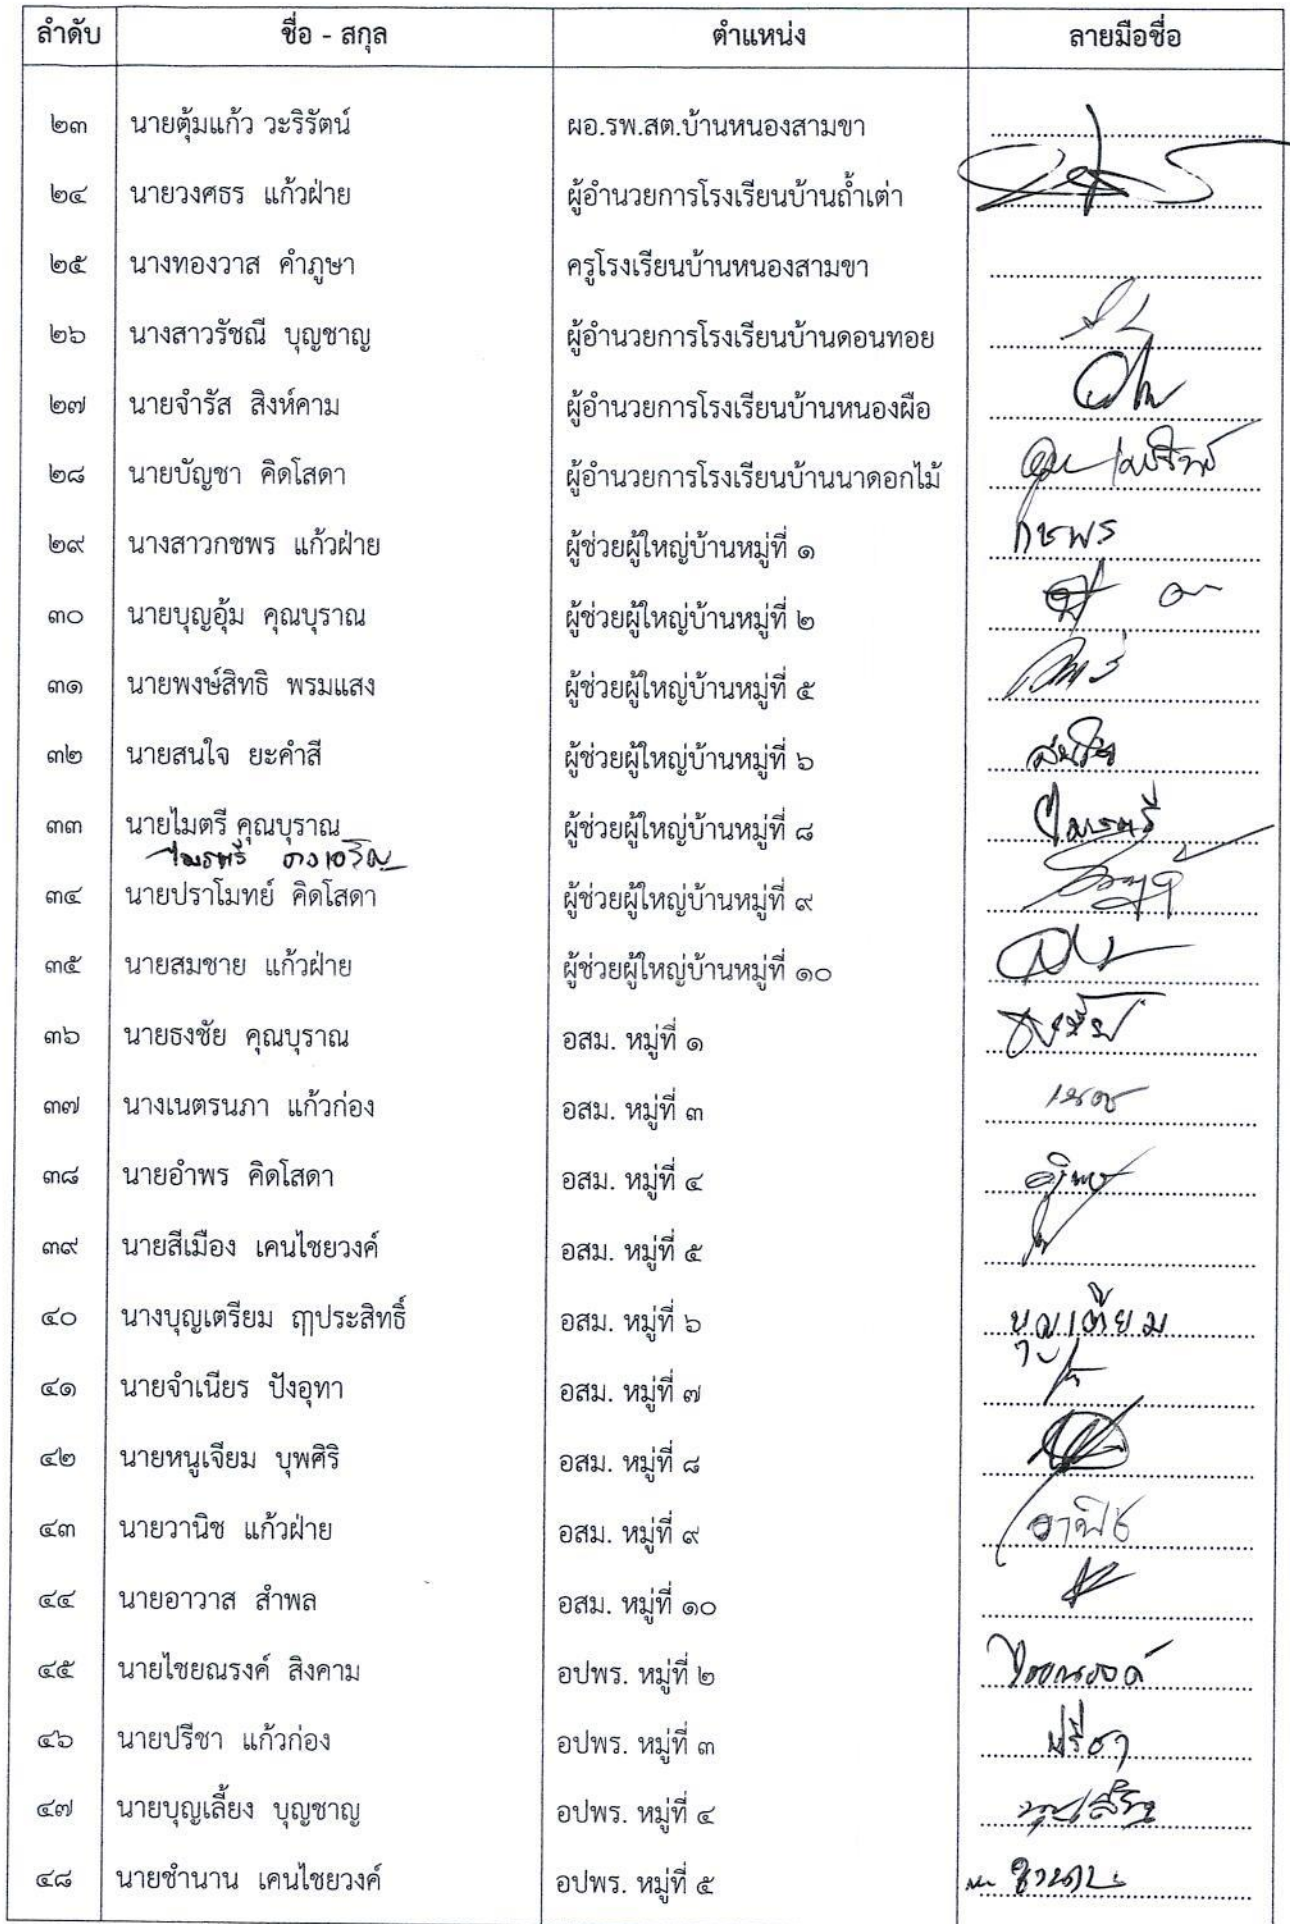 ลำดับ ชื่อ - สกุล ตำแหน่ง ลายมือชื่อ
๒๓ นายตุ้มแก้ว วะริรัตน์ ผอ.รพ.สต.บ้านหนองสามขา
๒๔ นายวงศธร แก้วฝ่าย ผู้อำนวยการโรงเรียนบ้านถ้ำเต่า
๒๕ นางทองวาส คำภูษา ครูโรงเรียนบ้านหนองสามขา
๒๖ นางสาวรัชณี บุญชาญ ผู้อำนวยการโรงเรียนบ้านดอนทอย
๒๗ นายจำรัส สิงห์คาม ผู้อำนวยการโรงเรียนบ้านหนองผือ
๒๘ นายบัญชา คิดโสดา ผู้อำนวยการโรงเรียนบ้านนาดอกไม้
๒๙ นางสาวกชพร แก้วฝ่าย ผู้ช่วยผู้ใหญ่บ้านหมู่ที่ ๑ กชพร
๓๐ นายบุญอุ้ม คุณบุราณ ผู้ช่วยผู้ใหญ่บ้านหมู่ที่ ๒
๓๑ นายพงษ์สิทธิ พรมแสง ผู้ช่วยผู้ใหญ่บ้านหมู่ที่ ๕
๓๒ นายสนใจ ยะคำสี ผู้ช่วยผู้ใหญ่บ้านหมู่ที่ ๖
๓๓ นายไมตรี คุณบุราณ ผู้ช่วยผู้ใหญ่บ้านหมู่ที่ ๘ ไมตรี
๓๔ นายปราโมทย์ คิดโสดา ผู้ช่วยผู้ใหญ่บ้านหมู่ที่ ๙
๓๕ นายสมชาย แก้วฝ่าย ผู้ช่วยผู้ใหญ่บ้านหมู่ที่ ๑๐
๓๖ นายธงชัย คุณบุราณ อสม. หมู่ที่ ๑ ธงชัย
๓๗ นางเนตรนภา แก้วก่อง อสม. หมู่ที่ ๓ เนตร
๓๘ นายอำพร คิดโสดา อสม. หมู่ที่ ๔
๓๙ นายสีเมือง เคนไชยวงค์ อสม. หมู่ที่ ๕
๔๐ นางบุญเตรียม ฤๅประสิทธิ์ อสม. หมู่ที่ ๖ บุญเตียม
๔๑ นายจำเนียร ปังอุทา อสม. หมู่ที่ ๗
๔๒ นายหนูเจียม บุพศิริ อสม. หมู่ที่ ๘
๔๓ นายวานิช แก้วฝ่าย อสม. หมู่ที่ ๙ วานิช
๔๔ นายอาวาส สำพล อสม. หมู่ที่ ๑๐
๔๕ นายไชยณรงค์ สิงคาม อปพร. หมู่ที่ ๒ ไชยณรงค์
๔๖ นายปรีชา แก้วก่อง อปพร. หมู่ที่ ๓ ปรีชา
๔๗ นายบุญเลี้ยง บุญชาญ อปพร. หมู่ที่ ๔
๔๘ นายชำนาน เคนไชยวงค์ อปพร. หมู่ที่ ๕